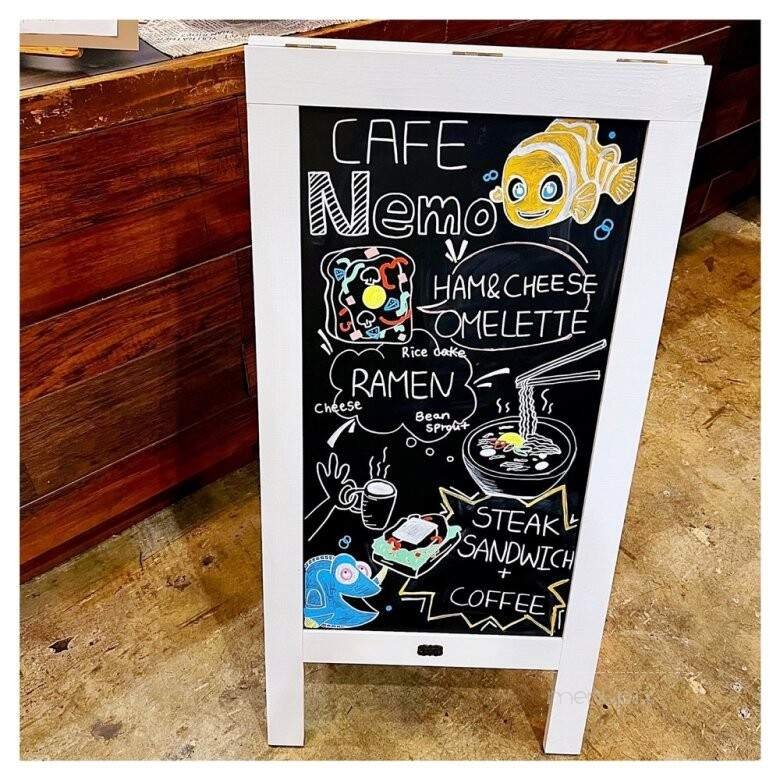 CAFE
Nemo
HAM&CHEESE
OMELETTE
Rice cake
RAMEN
Cheese
Bean
sprout
STEAK
SANDWICH
+
COFFEE